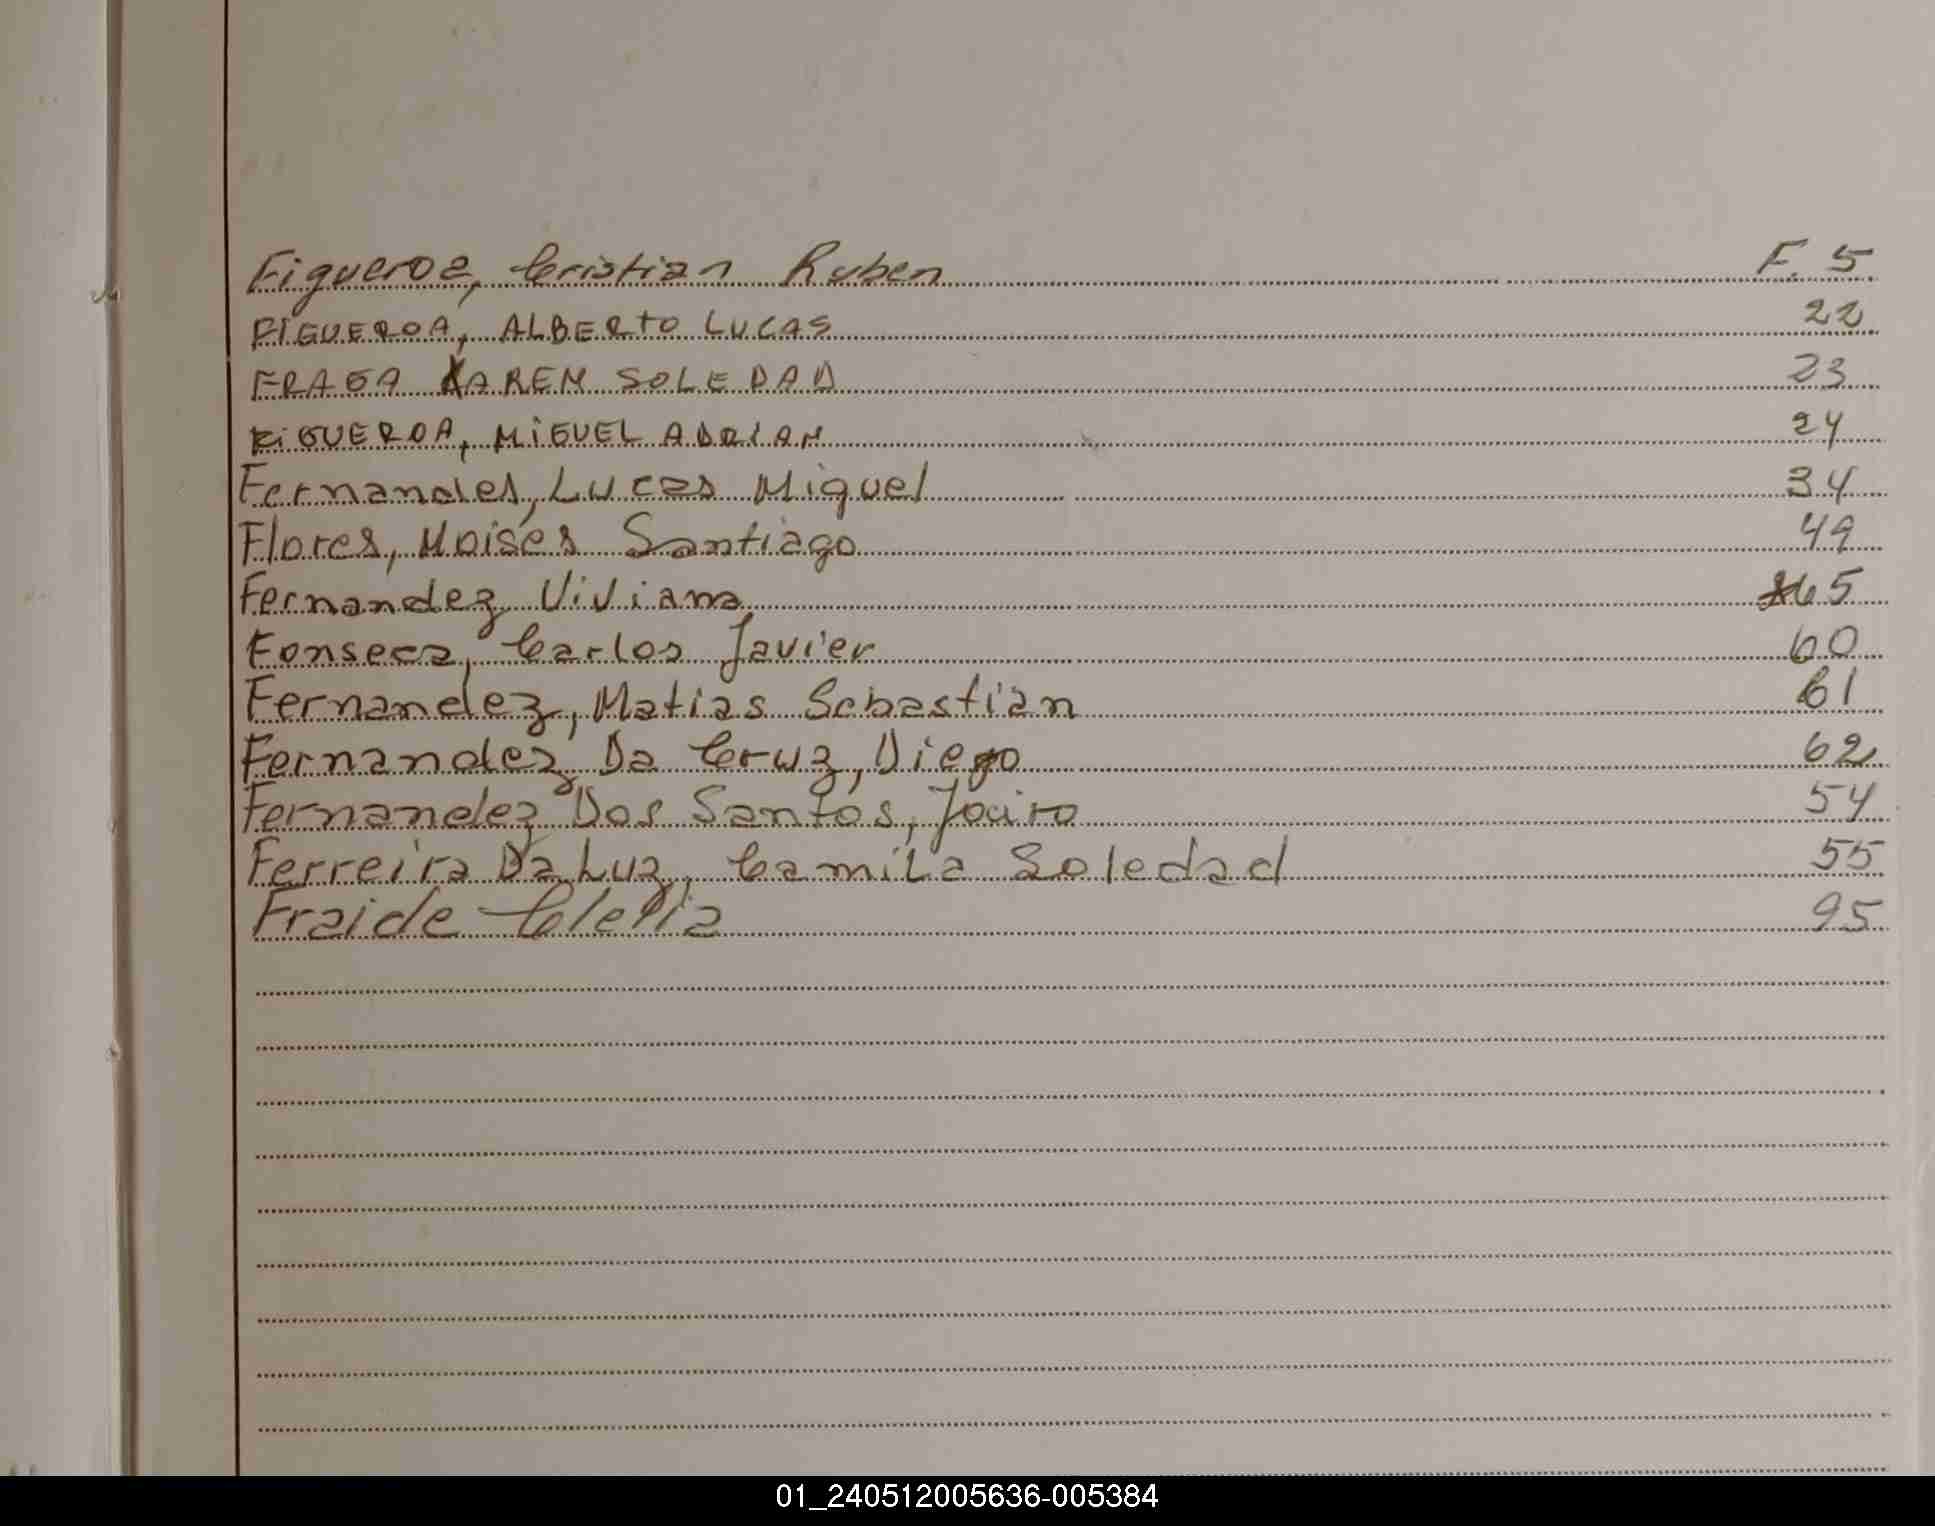 Figueroa, Cristian Ruben F. 5
FIGUEROA, ALBERTO LUCAS 22
FRAGA KAREM SOLEDAD 23
FIGUEROA, MIGUEL ADRIAN 24
Fernandes, Lucas Miguel 34
Flores, Moises Santiago 49
Fernandez Viviana 65
Fonseca, Carlos Javier 60
Fernandez, Matias Sebastián 61
Fernandez Da Cruz, Diego 62
Fernandez Dos Santos, Jociro 54
Ferreira Da Luz, Camila Soledad 55
Fraide Clelia 95
01_240512005636-005384